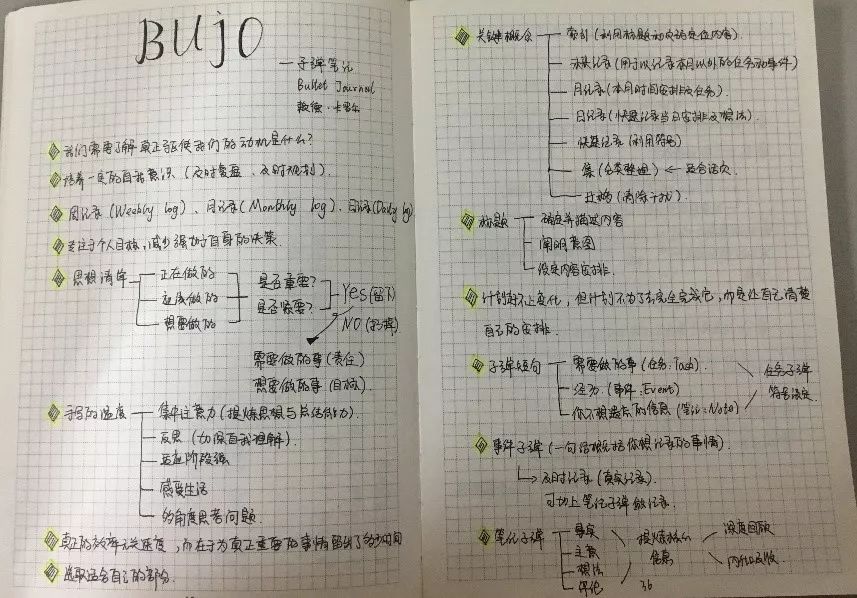 BUJO
—子弹笔记
Bullet Journal
我们需要了解真正驱使我们的动机是什么?
培养一贯的自我意识(及时复盘、及时规划).
周记录(Weekly log)、月记录(Monthly log)、日记录(Daily log)
专注于个人目标,减少强加于自身的决策.
思想清单
正在做的
应该做的
想要做的
是否重要?
是否紧要?
Yes(留下)
NO(扔掉)
需要做的事(责任)
想要做的事(目标).
手写的温度
集中注意力(提炼思想与总结能力).
反思(加深自我理解).
感受生活
多角度思考问题.
真正的效率无关速度,而在于为真正重要的事情留出了多少时间
选取适合自己的部分.
关键概念
索引(利用标题和页码定位内容).
未来记录(用于以记录本月以外的任务和事件)
月记录(本月时间安排及任务).
日记录(快速记录当日安排及想法).
快速记录(利用符号)
集(分类整理)
迁移(清除干扰).
标题
确定并描述内容
阐明意图
设定内容安排.
计划赶不上变化,但计划不为了去完全完成它,而是让自己清楚
自己的安排.
子弹短句
需要做的事(任务:Task)
经历(事件:Event)
你不想遗忘的信息(笔记:Note)
任务子弹
符号设定.
事件子弹(一句话概括你想记录的事情).
及时记录(真实记录).
可加上笔记子弹做记录.
笔记子弹
事实
主意
想法
评论
提炼核心
信息
深度回顾
内化吸收.
36